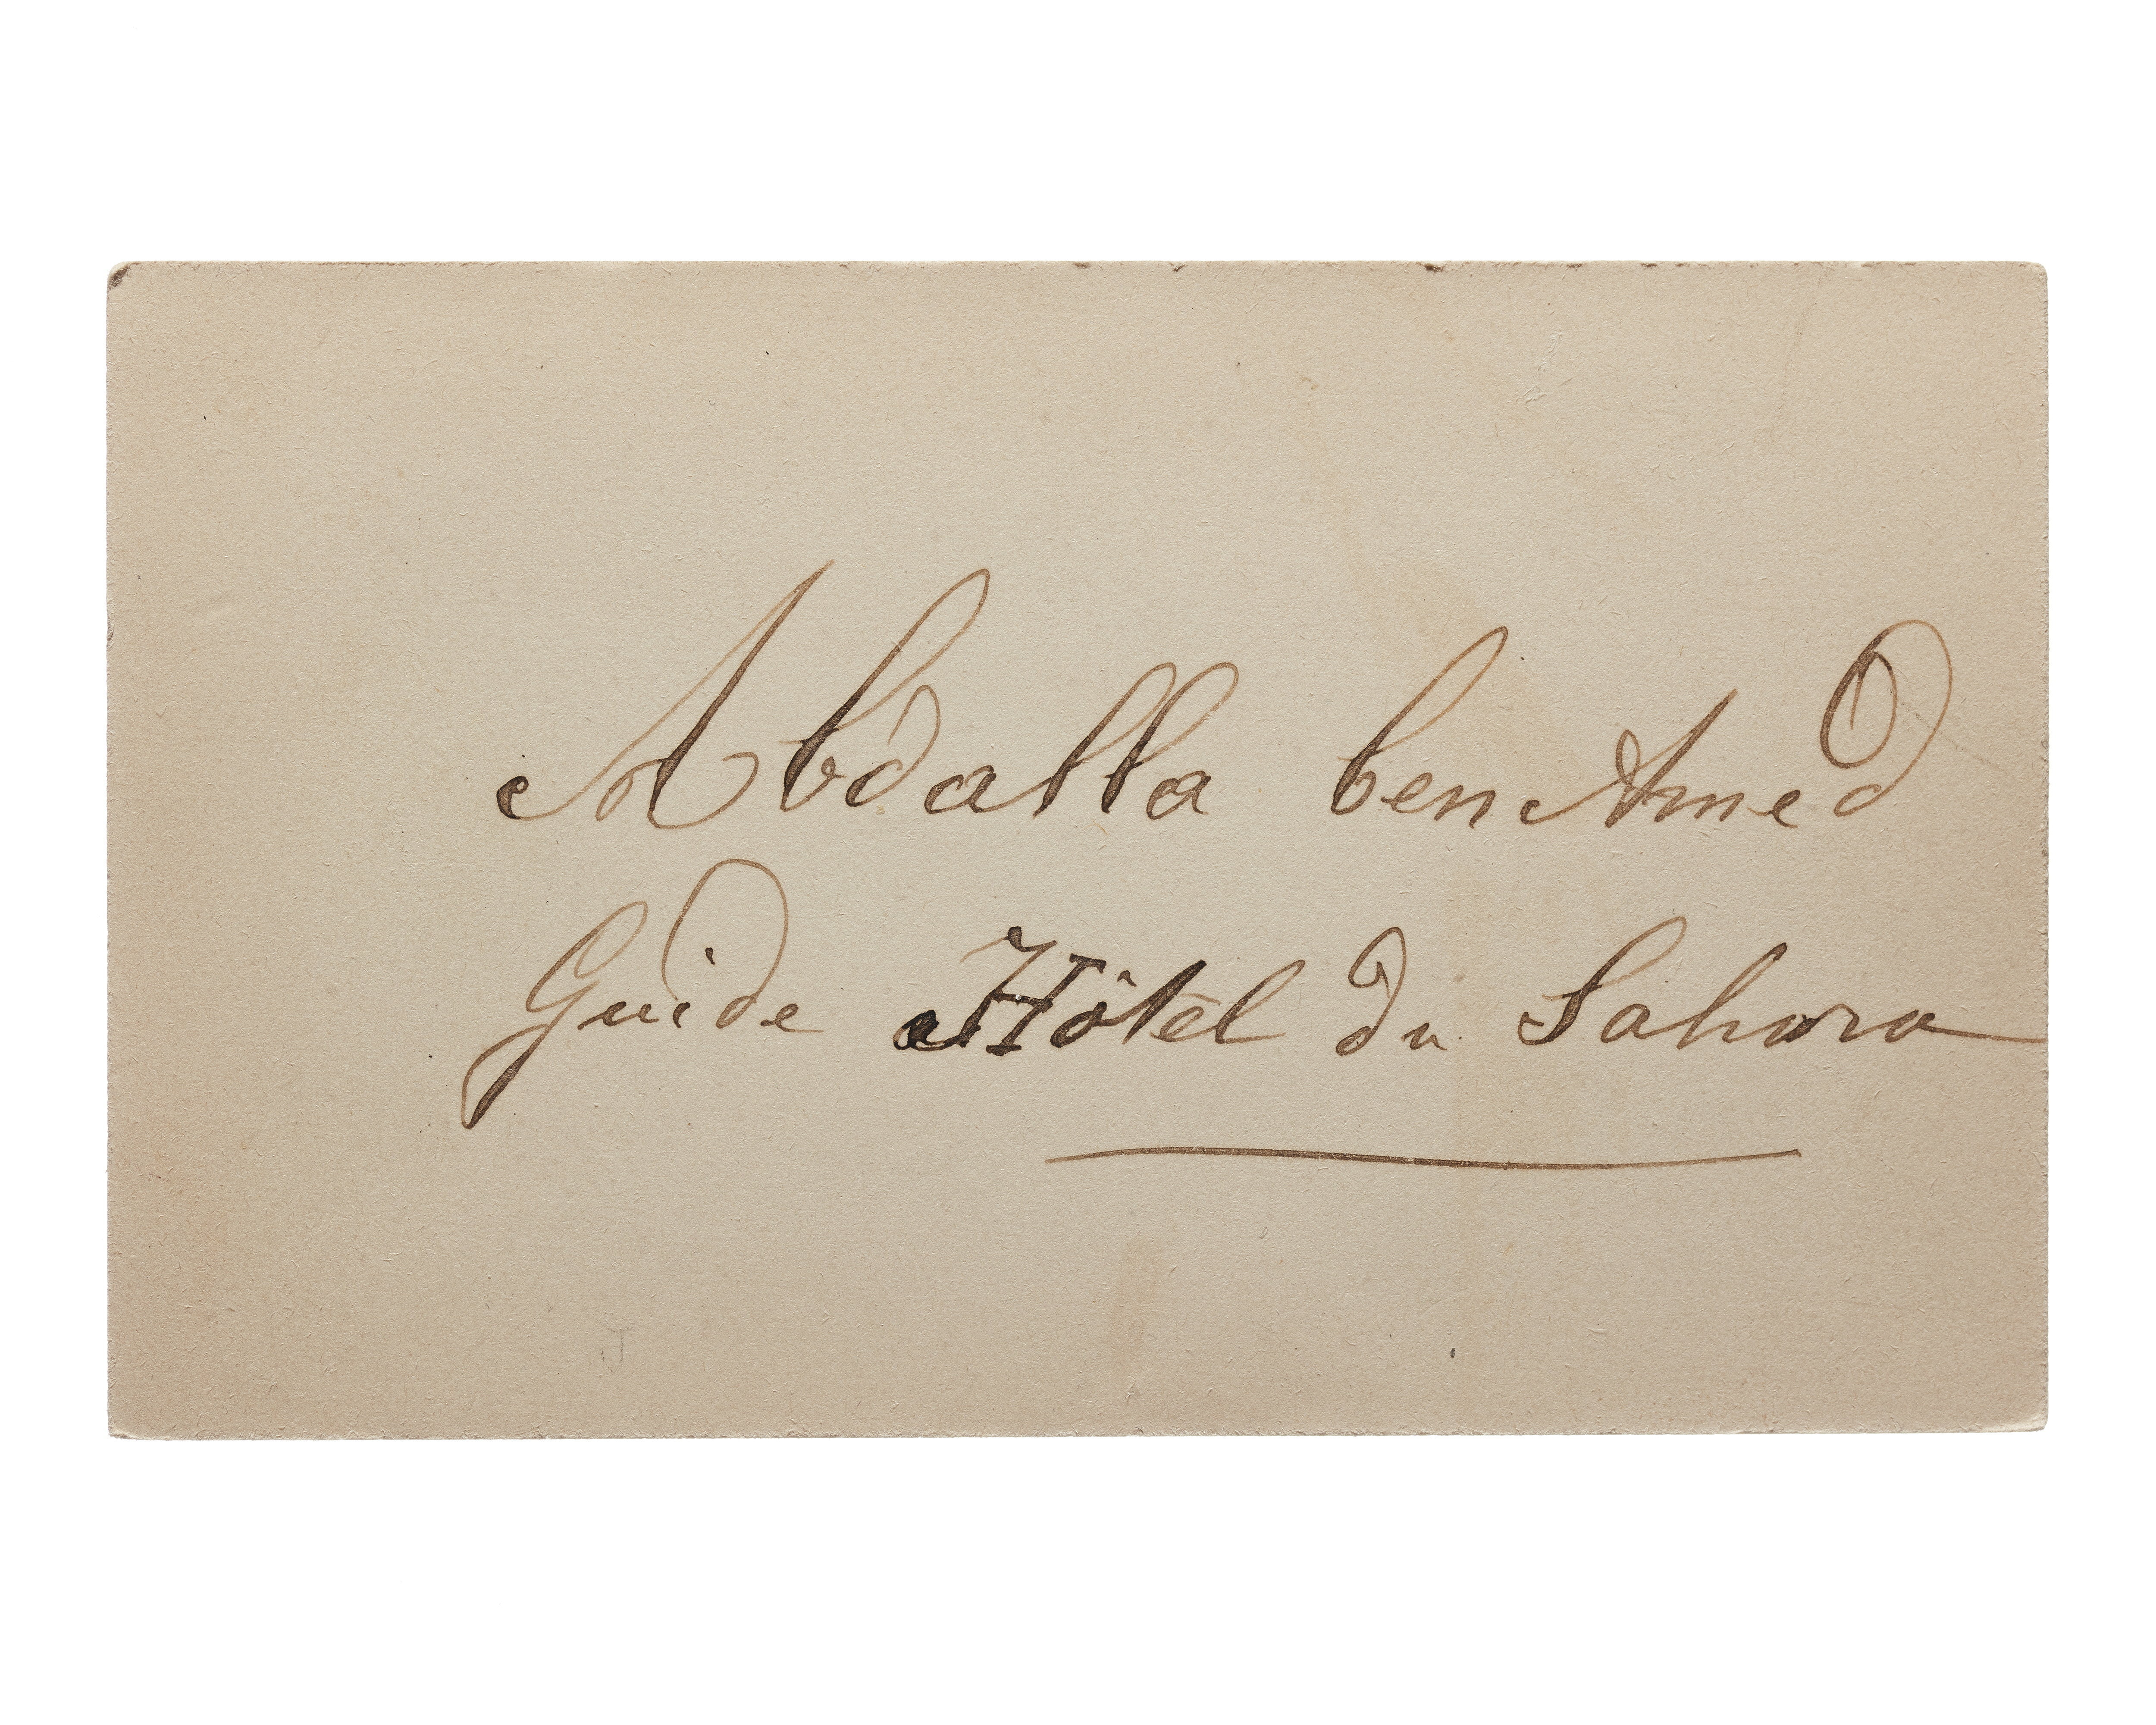 Abdalla ben Amed
Guide Hôtel du Sahara